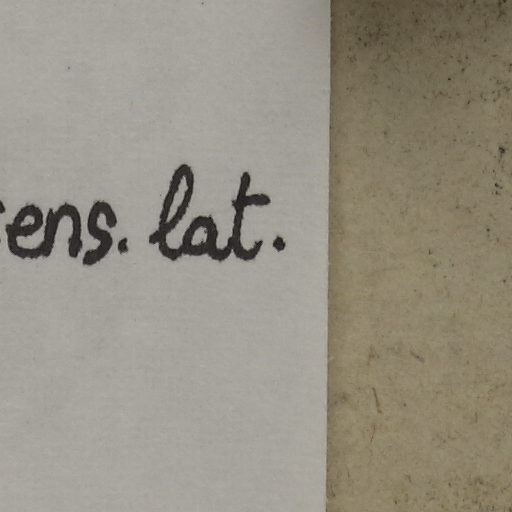 sens. lat.